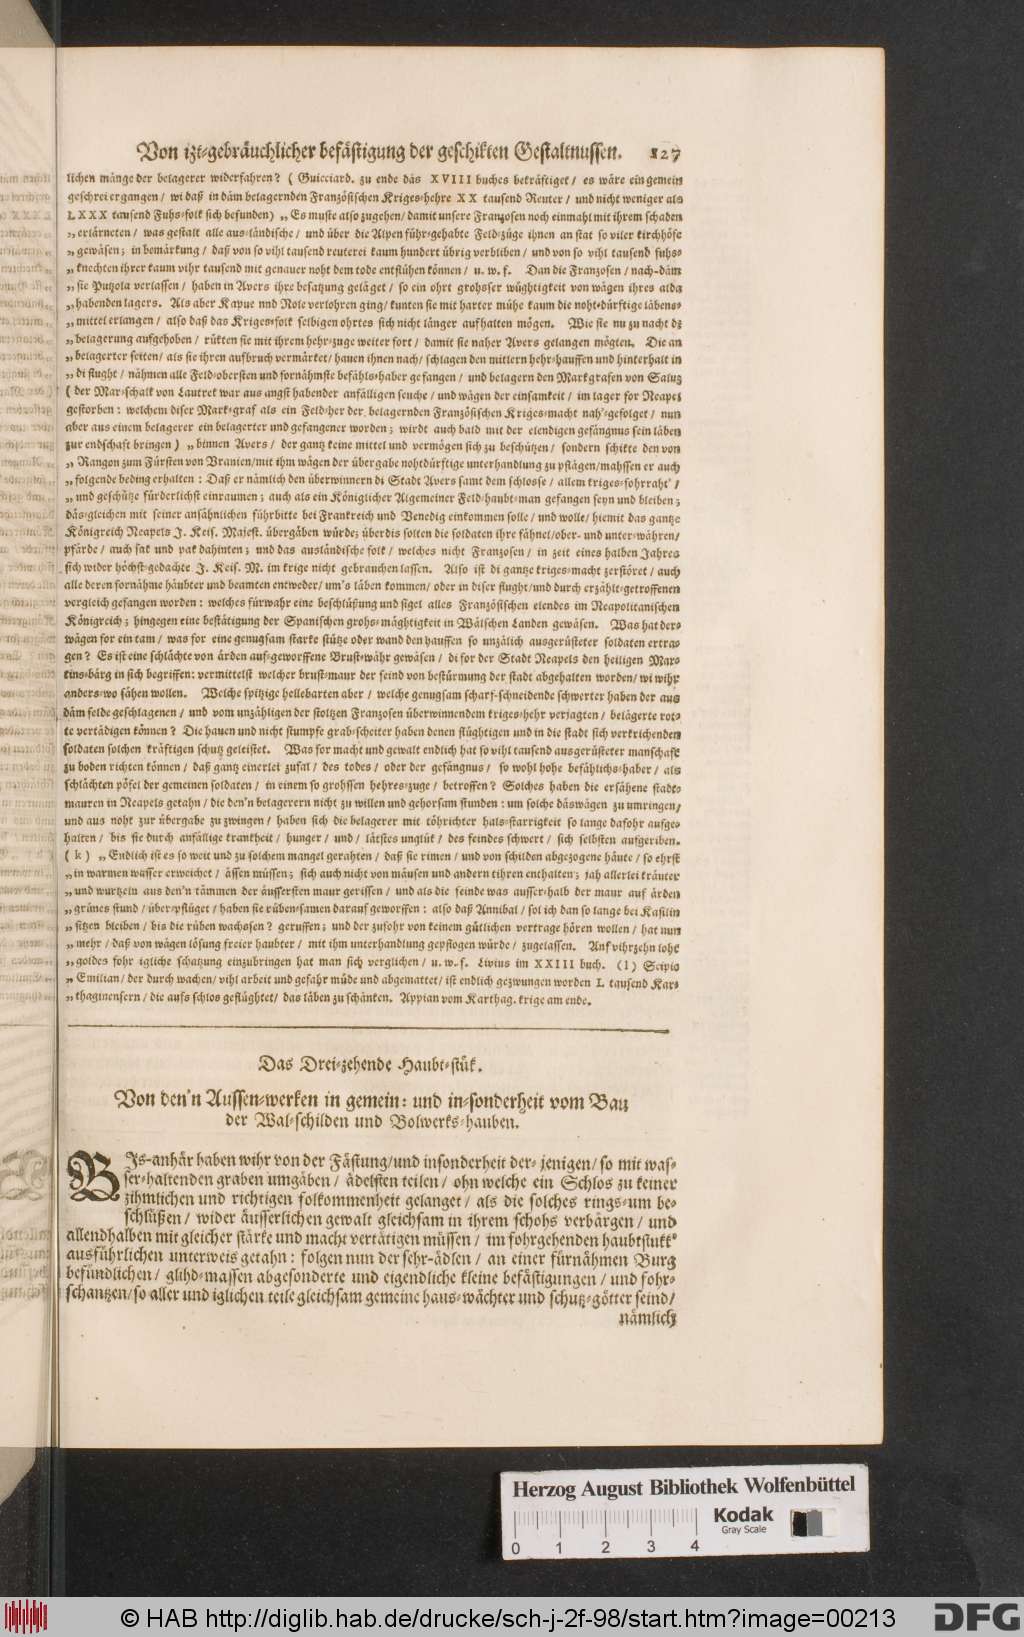 Von izt-gebräuchlicher befästigung der geschikten Gestaltnussen. 127
lichen mänge der belagerer widerfahren? ( Guicciard. zu ende däs XVIII buches bekräftiget / es wäre ein gemein
geschrei ergangen / wi daß in däm belagernden Französischen Kriges-hehre XX tausend Reuter / und nicht weniger als
LXXX tausend Fuhs-folk sich befunden) „Es muste also zugehen / damit unsere Franzosen noch einmahl mit ihrem schaden
„ erlärneten / was gestalt alle aus-ländische / und über die Alpen führ-gehabte Feld-züge ihnen an stat so viler kirchhöfe
„ gewäsen; in bemärkung / daß von so vihl tausend reuterei kaum hundert übrig verbliben / und von so vihl tausend fuhs-
„ knechten ihrer kaum vihr tausend mit genauer noht dem tode entflühen können / u. w. f. Dan die Franzosen / nach-däm
„ sie Putzola verlassen / haben in Avers ihre besatzung geläget / so ein ohrt grohsser wüghtigkeit von wägen ihres alda
„ habenden lagers. Als aber Kapue und Nole verlohren ging / kunten sie mit harter mühe kaum die noht-dürftige läbens-
„ mittel erlangen / also daß das Kriges-folk selbigen ohrtes sich nicht länger aufhalten mögen. Wie sie nu zu nacht dz
„ belagerung aufgehoben / rükten sie mit ihrem hehr-zuge weiter fort / damit sie naher Avers gelangen möglen. Die an
„ belagerter seiten / als sie ihren aufbruch vermärket / hauen ihnen nach / schlagen den mitlern hehr-hauffen und hinterhalt in
„ di flught / nähmen alle Feld-obersten und fornähmste befähls-haber gefangen / und belagern den Markgrafen von Saluz
( der Mar-schalk von Lautrek war aus angst habender anfälligen seuche / und wägen der einsamkeit / im lager for Neapel
gestorben : welchem diser Mark-graf als ein Feld-her der belagernden Französischen Kriges-macht nah'-gefolget / nun
aber aus einem belagerer ein belagerter und gefangener worden; wirdt auch bald mit der elendigen gefängnus sein läben
zur endschaft bringen ) „ binnen Avers / der gantz keine mittel und vermögen sich zu beschützen / sondern schikte den von
„ Rangon zum Fürsten von Uranien / mit ihm wägen der übergabe nohtdürftige unterhandlung zu pflägen / mahssen er auch
„ folgende beding erhalten : Daß er nämlich den überwinnern di Stadt Avers samt dem schlosse / allem kriges-fohrraht' /
„ und geschütze fürderlichst einraumen; auch als ein Königlicher Algemeiner Feld-haubt-man gefangen seyn und bleiben;
däs-gleichen mit seiner ansähnlichen führbitte bei Frankreich und Venedig einkommen solle / und wolle / hiemit das gantze
Königreich Neapels J. Keis. Majest. übergäben würde; überdis solten die soldaten ihre fähnel / ober- und unter-währen /
pfärde / auch sak und pak dahinten; und das ausländische folk / welches nicht Franzosen / in zeit eines halben Jahres
sich wider höchst-gedachte J. Keis. M. im krige nicht gebrauchen lassen. Also ist di gantze kriges-macht zerstöret / auch
alle deren fornähme häubter und beamten entweder / um's läben kommen / oder in diser flught / und durch erzählt-getroffenen
vergleich gefangen worden : welches fürwahr eine beschlüßung und sigel alles Französischen elendes im Neapolitanischen
Königreich; hingegen eine bestätigung der Spanischen grohs-mäghtigkeit in Wälschen Landen gewäsen. Was hat der-
wägen for ein tam / was for eine genugsam starke stütze oder wand den hauffen so unzälich ausgerüsteter soldaten ertra-
gen? Es ist eine schlächte von ärden auf-geworffene Brust-währ gewäsen / di for der Stadt Neapels den heiligen Mar-
tins-bärg in sich begriffen: vermittelst welcher brust-maur der feind von bestürmung der stadt abgehalten worden / wi wihr
anders-wo sähen wollen. Welche spitzige hellebarten aber / welche genugsam scharf-schneidende schwerter haben der aus
däm felde geschlagenen / und vom unzähligen der stoltzen Franzosen überwinnendem kriges-hehr verjagten / belägerte rot-
te vertädigen können? Die hauen und nicht stumpfe grab-scheiter haben denen flüghtigen und in die stadt sich verkrichenden
soldaten solchen kräftigen schutz geleistet. Was for macht und gewalt endlich hat so vihl tausend ausgerüsteter manschaft
zu boden richten können / daß gantz einerlei zufal / des todes / oder der gefängnus / so wohl hohe befählichs-haber / als
schlächten pöfel der gemeinen soldaten / in einem so grohssen hehres-zuge / betroffen? Solches haben die ersähene stadt-
mauren in Neapels getahn / die den'n belagerern nicht zu willen und gehorsam stunden : um solche däswägen zu umringen /
und aus noht zur übergabe zu zwingen / haben sich die belagerer mit töhrichter hals-starrigkeit so lange dafohr aufge-
halten / bis sie durch anfällige krankheit / hunger / und / lätstes unglük / des feindes schwert / sich selbsten aufgeriben.
( k ) „Endlich ist es so weit und zu solchem mangel gerahten / daß sie rimen / und von schilden abgezogene häute / so ehrst
„ in warmen wasser erweichet / ässen müssen; sich auch nicht von mäusen und andern tihren enthalten; jah allerlei kräuter
„ und wurtzeln aus den'n tämmen der äussersten maur gerissen / und als die feinde was ausser-halb der maur auf ärden
„ grünes stund / über-pflüget / haben sie rüben-samen darauf geworffen : also daß Annibal / sol ich dan so lange bei Kasilin
„ sitzen bleiben / bis die rüben wachssen? geruffen; und der zufohr von keinem gütlichen vertrage hören wollen / hat nun
„ mehr / daß von wägen lösung freier haubter / mit ihm unterhandlung gepflogen würde / zugelassen. Auf vihrzehn loht
„ goldes fohr igliche schatzung einzubringen hat man sich verglichen / u. w. f. Livius im XXIII buch. (l) Scipio
„ Emilian / der durch wachen / vihl arbeit und gefahr müde und abgemattet / ist endlich gezwungen worden L tausend Kar-
„ thaginensern / die aufs schlos geflüghtet / das läben zu schänken. Appian vom Karthag. krige am ende.
Das Drei-zehende Haubt-stük.
Von den'n Aussen-werken in gemein: und in-sonderheit vom Bau
der Wal-schilden und Bolwerks-hauben.
BIs-anhär haben wihr von der Fästung / und insonderheit der-jenigen / so mit was-
ser-haltenden graben umgäben / ädelsten teilen / ohn welche ein Schlos zu keiner
zihmlichen und richtigen folkommenheit gelanget / als die solches rings-um be-
schlüßen / wider äusserlichen gewalt gleichsam in ihrem schohs verbärgen / und
allendhalben mit gleicher stärke und macht vertätigen müssen / im fohrgehenden haubtstukk'
ausführlichen unterweis getahn : folgen nun der sehr-ädlen / an einer fürnähmen Burg
befündlichen / glihd-massen abgesonderte und eigendliche kleine befästigungen / und fohr-
schantzen / so aller und iglichen teile gleichsam gemeine haus-wächter und schutz-götter seind /
nämlich
Herzog August Bibliothek Wolfenbüttel
Kodak
Gray Scale
0 1 2 3 4
© HAB http://diglib.hab.de/drucke/sch-j-2f-98/start.htm?image=00213
DFG